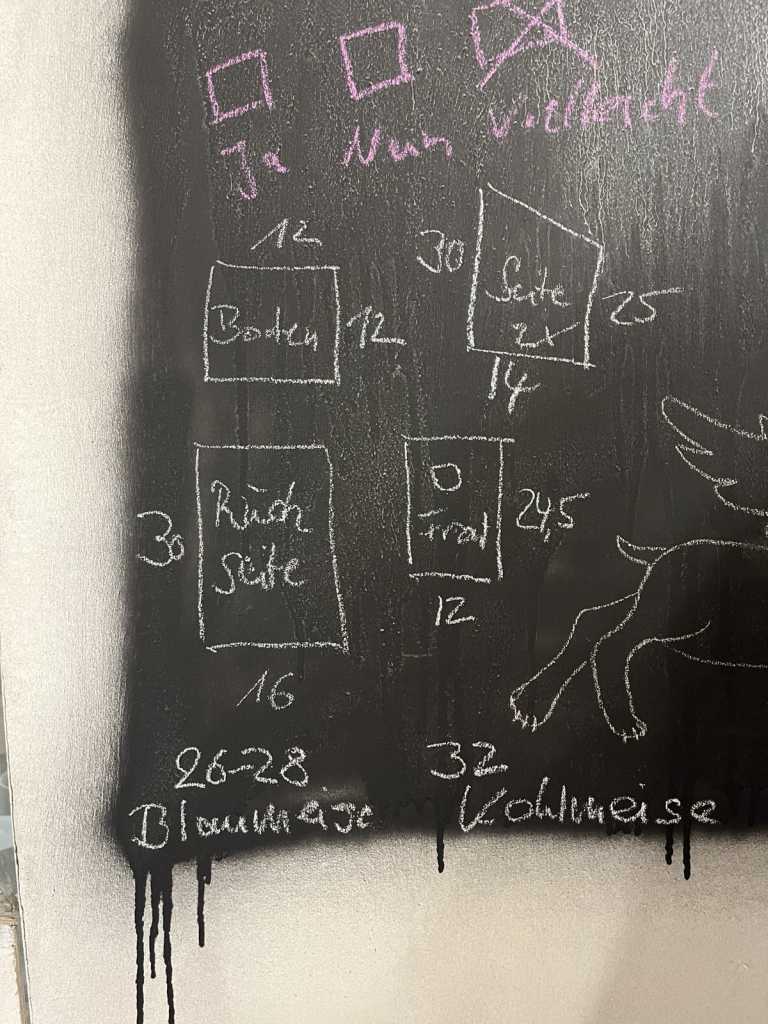 Ja Nein Vielleicht
12
Boden 12
30 Seite 25
2x
14
30 Rück
Seite
16
Front 24,5
12
26-28 32
Blaumeise Kohlmeise